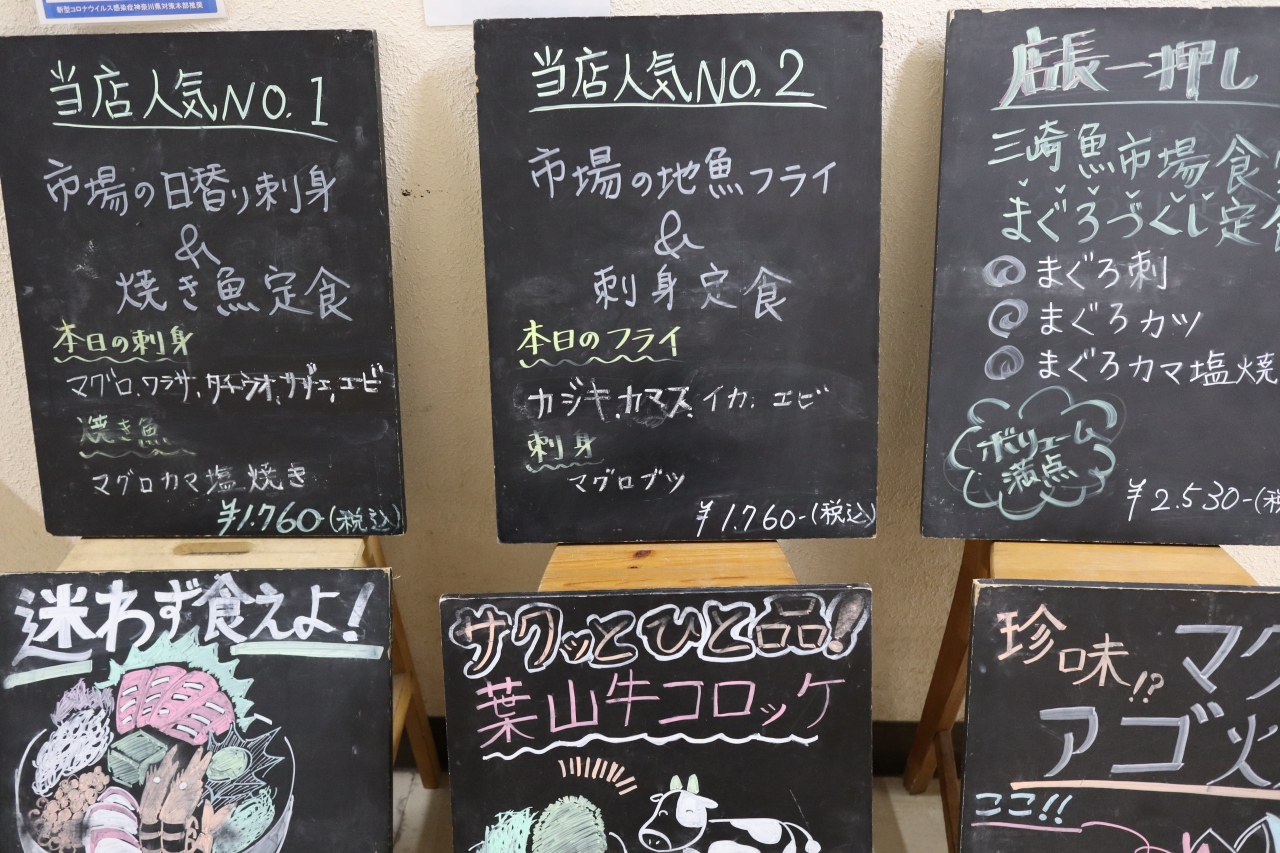 新型コロナウイルス感染症神奈川県対策本部推奨
当店人気NO.1
市場の日替り刺身
&
焼き魚定食
本日の刺身
マグロ、ワラサ、タチウオ、サザエ、エビ
焼き魚
マグロカマ塩焼き
¥1.760-(税込)
当店人気NO.2
市場の地魚フライ
&
刺身定食
本日のフライ
カジキ、カマス、イカ、エビ
刺身
マグロブツ
¥1.760-(税込)
店長一押し
三崎魚市場食
まぐろづくし定
まぐろ刺
まぐろカツ
まぐろカマ塩焼
ボリューム
満点
¥2.530-(税
迷わず食えよ!
サクッとひと品!
葉山牛コロッケ
珍味!?
マグ
アゴ
ここ!!